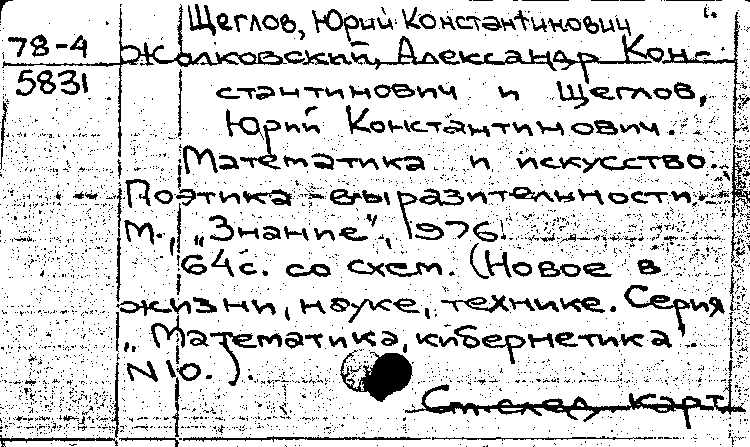 Щеглов, Юрий Константинович 1.
78-4 Жолковский, Александр Кон-
5831 стантинович и Щеглов,
Юрий Константинович.
Математика и искусство.
Поэтика выразительности.
М., „Знание“, 1976.
64с. со схем. (Новое в
жизни, науке, технике. Серия
„Математика, кибернетика“.
N 10.).
См след карт